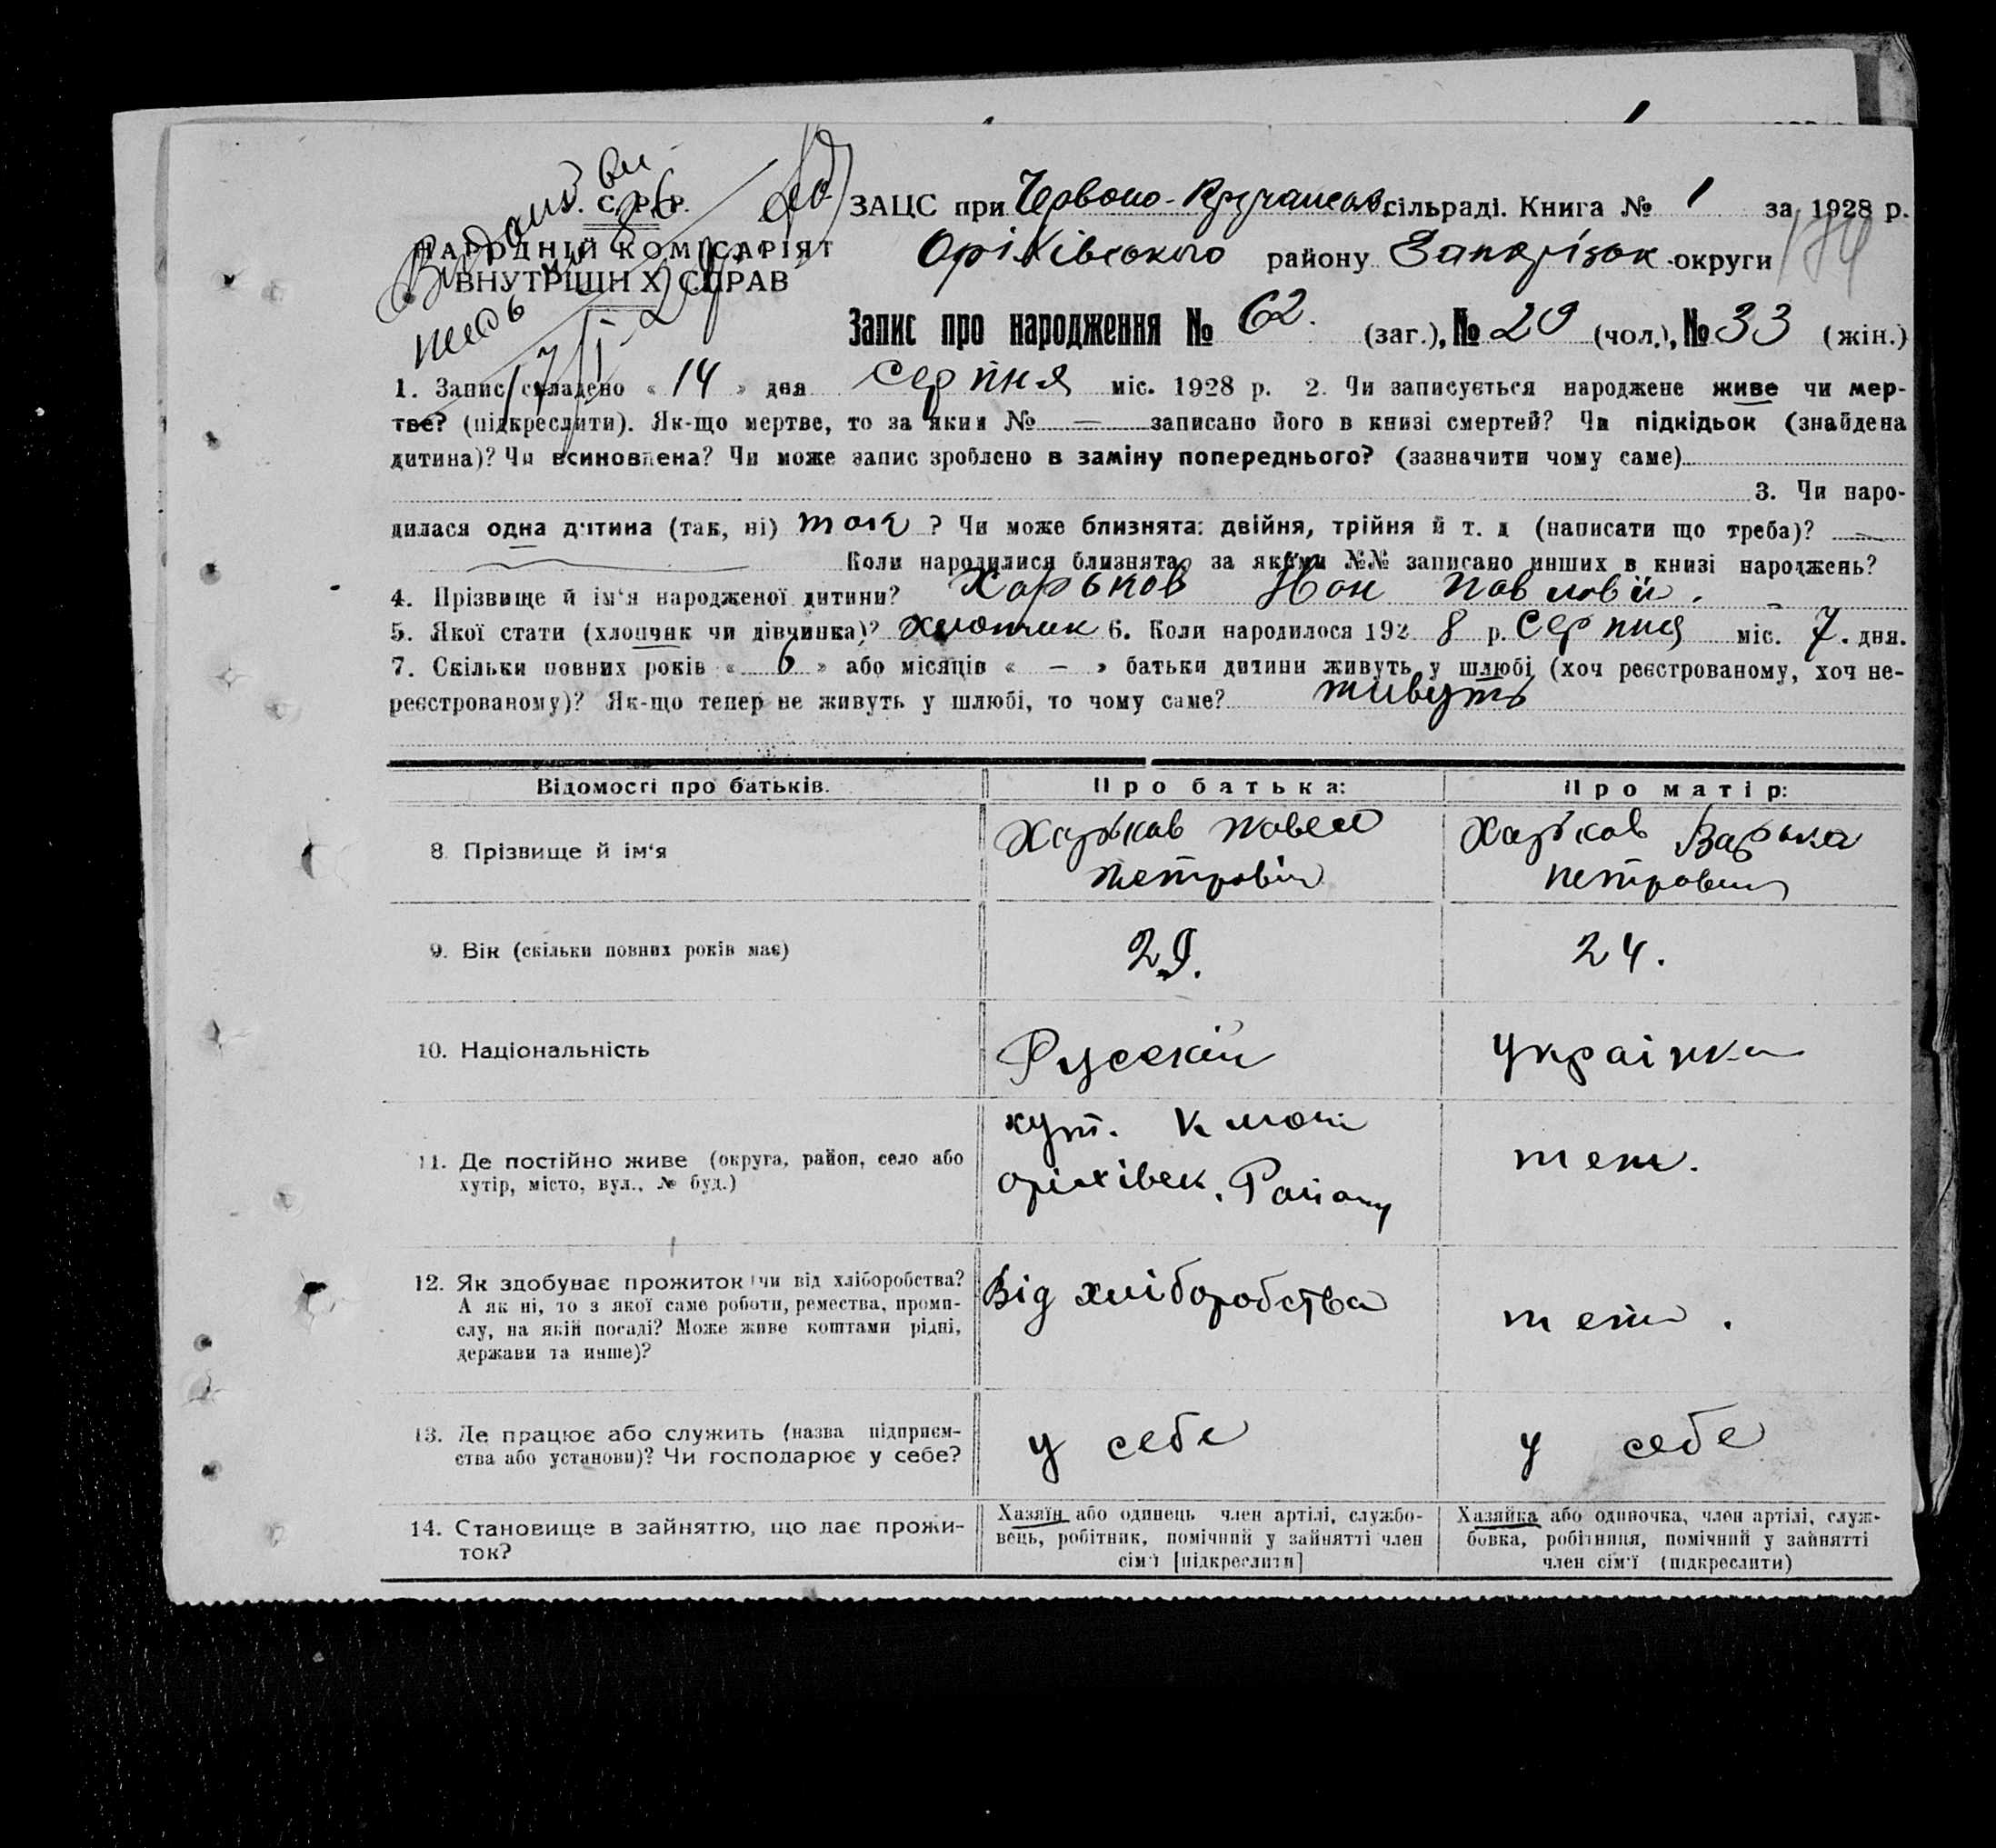 С. Р. Р.
НАРОДНІЙ КОМІСАРІЯТ
ВНУТРІШН Х СПРАВ
ЗАЦС при Червоно- сільраді. Книга № 1 за 1928 р.
Оріхівського району Запорізьк округи
Запис про народження № 62. (заг.), № 29 (чол.), № 33 (жін.)
1. Запис складено « 14 » дня серпня міс. 1928 р. 2. Чи записується народжене живе чи мер-
тве? (підкреслити). Як-що мертве, то за яким № — записано його в книзі смертей? Чи підкідьок (знайдена
дитина)? Чи всиновлена? Чи може запис зроблено в заміну попереднього? (зазначити чому саме)
3. Чи наро-
дилася одна дитина (так, ні) так ? Чи може близнята: двійня, трійня й т. д (написати що треба)? —
Коли народилися близнята, за якими №№ записано инших в книзі народжень?
4. Прізвище й ім'я народженої дитини? Харьков Іван Павлович.
5. Якої стати (хлопчик чи дівчинка)? Хлопчик 6. Коли народилося 192 8 р. Серпня міс. 7. дня.
7. Скільки повних років « 6 » або місяців « — » батьки дитини живуть у шлюбі (хоч реєстрованому, хоч не-
реєстрованому)? Як-що тепер не живуть у шлюбі, то чому саме? живуть
Відомості про батьків.
Про батька:
Про матір:
8. Прізвище й ім'я
Харьков Павел
Петровіч
Харьков Варька
Петровна
9. Вік (скільки повних років має)
29.
24.
10. Національність
Русскій
Українка
11. Де постійно живе (округа, район, село або
хутір, місто, вул., № буд.)
хут.
Оріхівськ. Району
теж.
12. Як здобуває прожиток чи від хліборобства?
А як ні, то з якої саме роботи, ремества, проми-
слу, на якій посаді? Може живе коштами рідні,
держави та инше)?
Від хліборобства
теж.
13. Де працює або служить (назва підприєм-
ства або установи)? Чи господарює у себе?
у себе
у себе
14. Становище в зайняттю, що дає прожи-
ток?
Хазяїн або одинець член артілі, службо-
вець, робітник, помічний у зайнятті член
сім'ї [підкреслити]
Хазяйка або одиночка, член артілі, служ-
бовка, робітниця, помічний у зайнятті
член сім'ї (підкреслити)